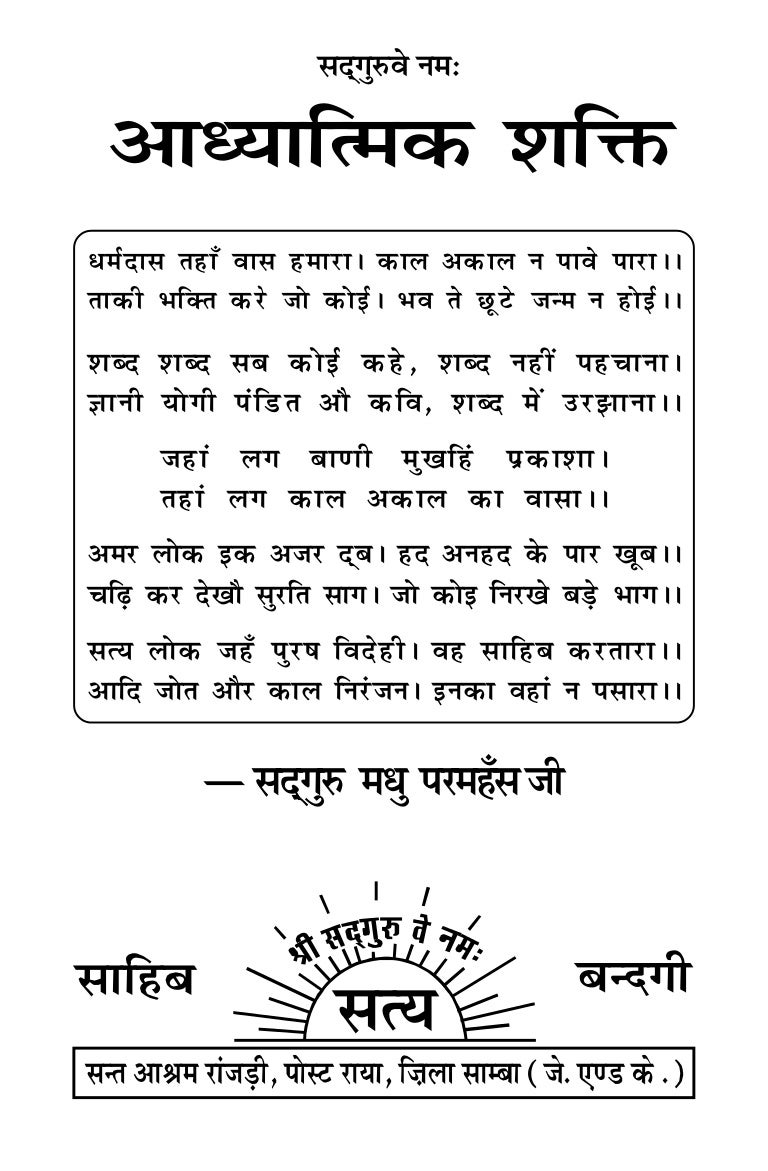 सद्गुरुवे नमः
आध्यात्मिक शक्ति
धर्मदास तहाँ वास हमारा। काल अकाल न पावे पारा।।
ताकी भक्ति करे जो कोई। भव ते छूटे जन्म न होई।।
शब्द शब्द सब कोई कहे, शब्द नहीं पहचाना।
ज्ञानी योगी पंडित औ कवि, शब्द में उरझाना।।
जहां लग बाणी मुखहिं प्रकाशा।
तहां लग काल अकाल का वासा।।
अमर लोक इक अजर द्ब। हद अनहद के पार खूब।।
चढ़ि कर देखौ सुरति साग। जो कोइ निरखे बड़े भाग।।
सत्य लोक जहँ पुरष विदेही। वह साहिब करतारा।।
आदि जोत और काल निरंजन। इनका वहां न पसारा।।
— सद्गुरु मधु परमहँस जी
श्री सद्गुरु वे नमः
साहिब सत्य बन्दगी
सन्त आश्रम रांजड़ी, पोस्ट राया, ज़िला साम्बा ( जे. एण्ड के . )